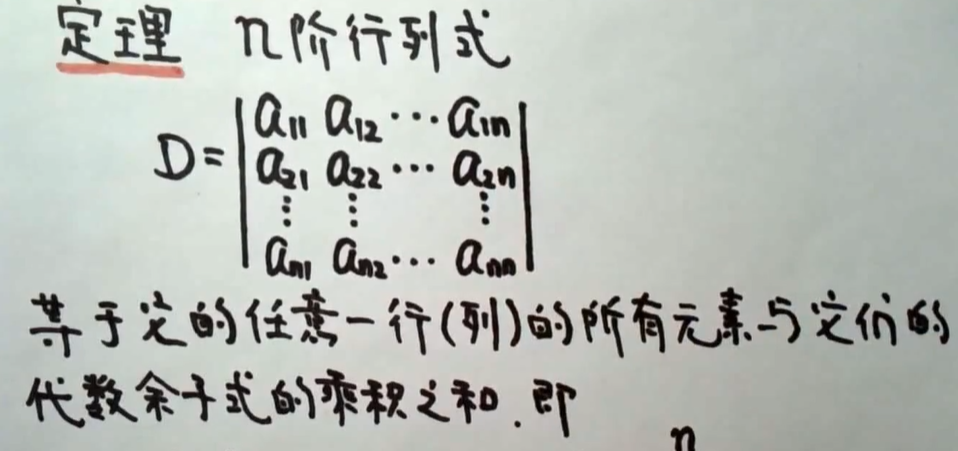 定理 n阶行列式
a11 a12 ⋯ a1n
D= a21 a22 ⋯ a2n
⋮ ⋮ ⋮
an1 an2 ⋯ ann
等于它的任意一行(列)的所有元素与它们的
代数余子式的乘积之和.即
n